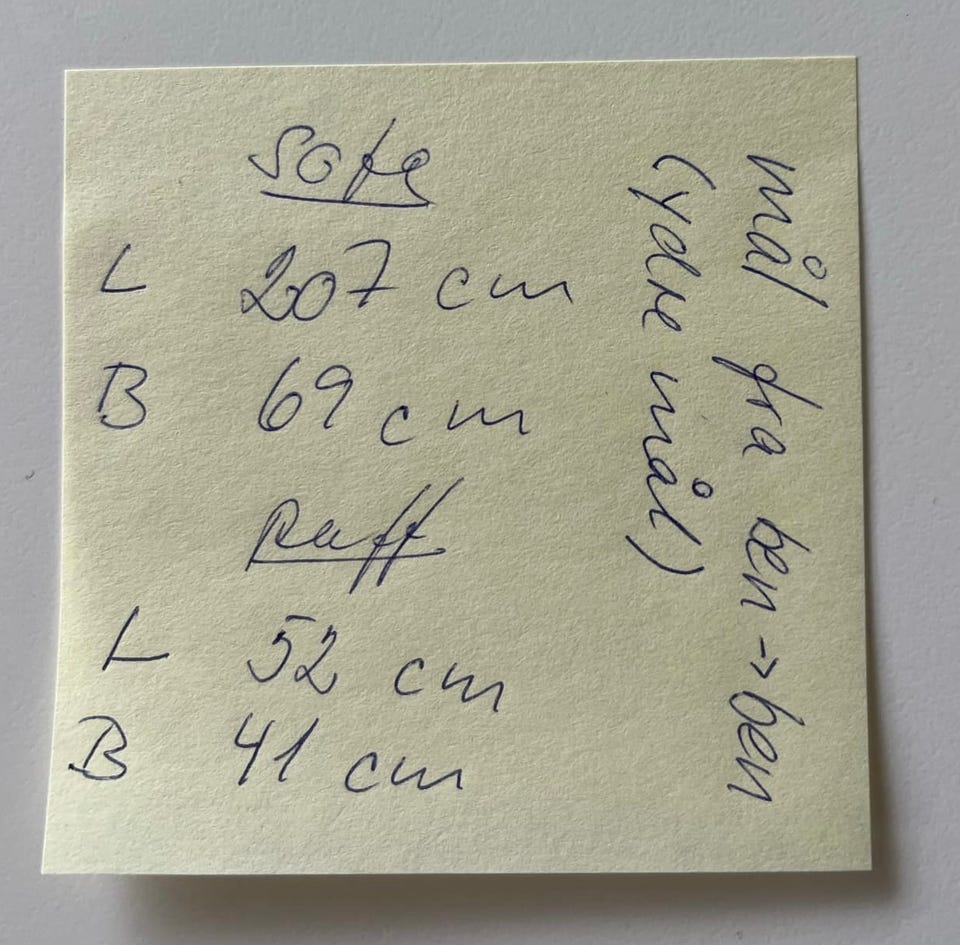 Sofa
L 207 cm
B 69 cm
Puff
L 52 cm
B 41 cm
mål fra ben → ben
(ydre mål)